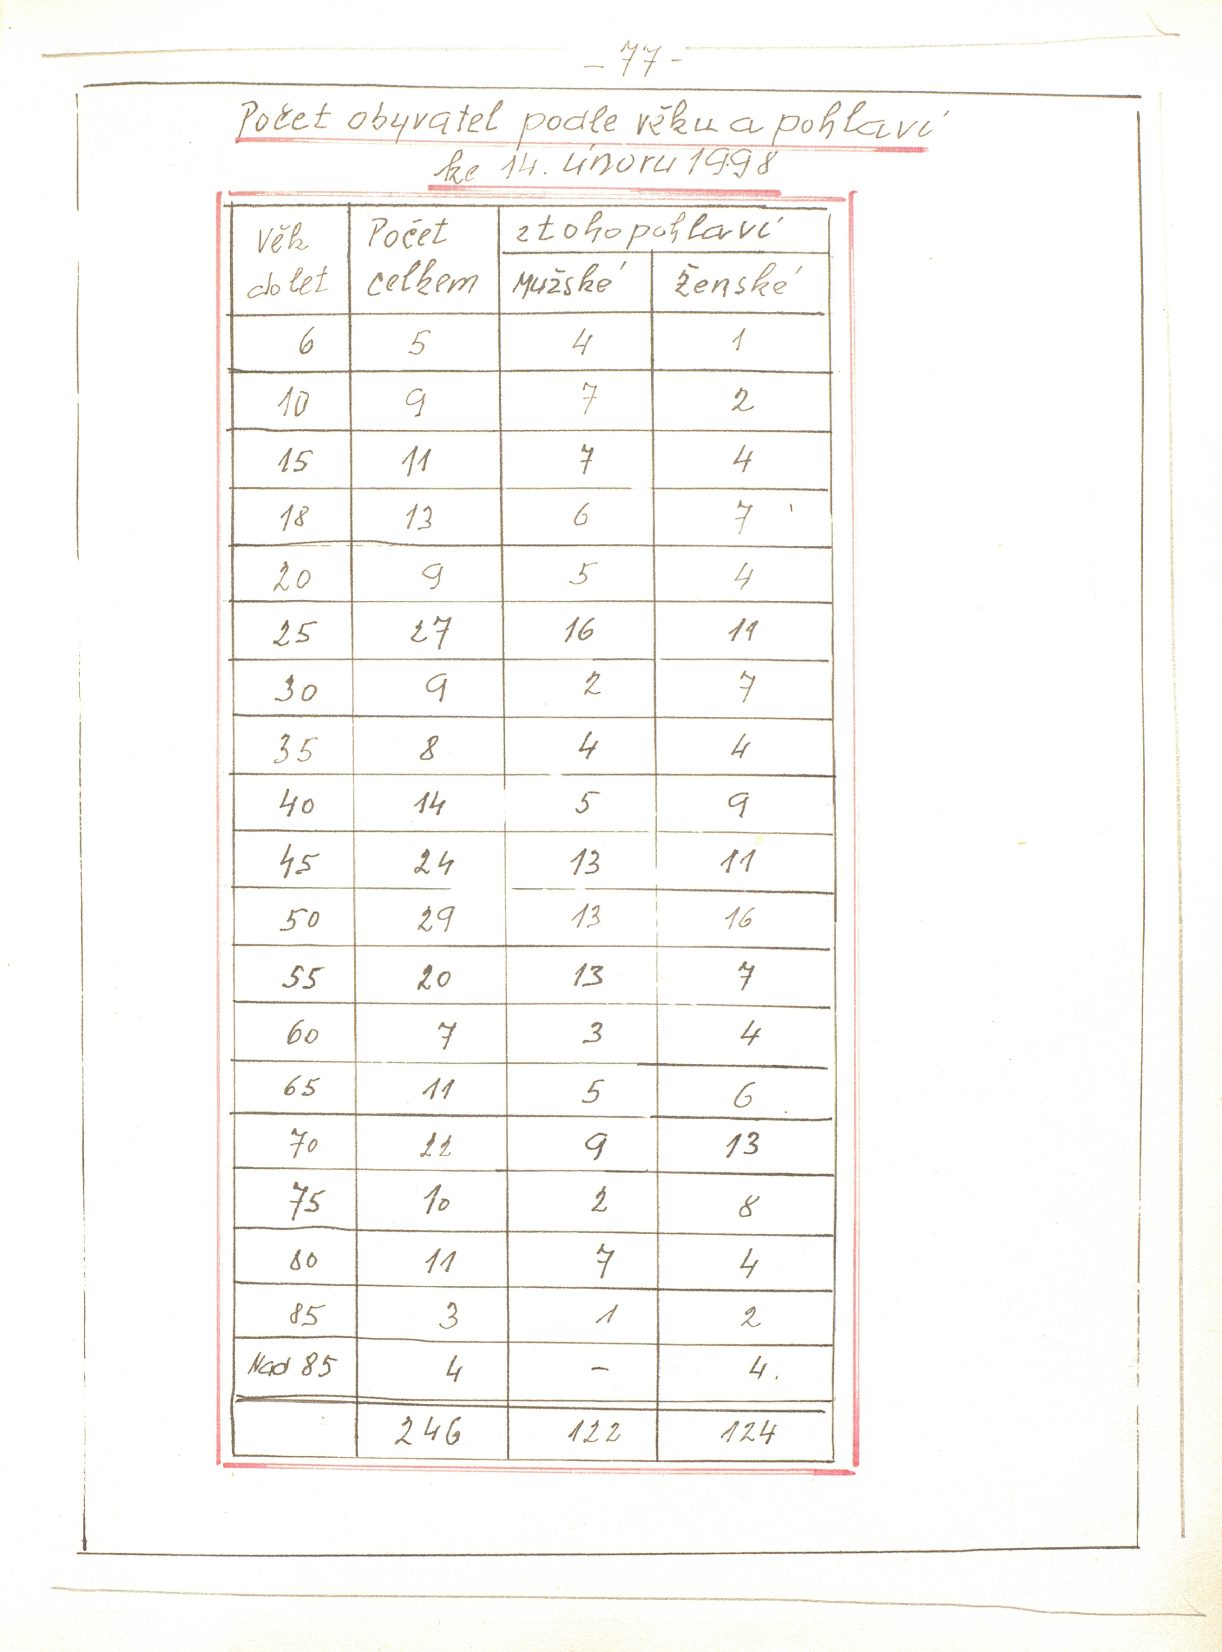 - 77 -
Počet obyvatel podle věku a pohlaví
ke 14. únoru 1998
Věk do let Počet celkem z toho pohlaví
Mužské Ženské
6 5 4 1
10 9 7 2
15 11 7 4
18 13 6 7
20 9 5 4
25 27 16 11
30 9 2 7
35 8 4 4
40 14 5 9
45 24 13 11
50 29 13 16
55 20 13 7
60 7 3 4
65 11 5 6
70 22 9 13
75 10 2 8
80 11 7 4
85 3 1 2
Nad 85 4 - 4.
246 122 124